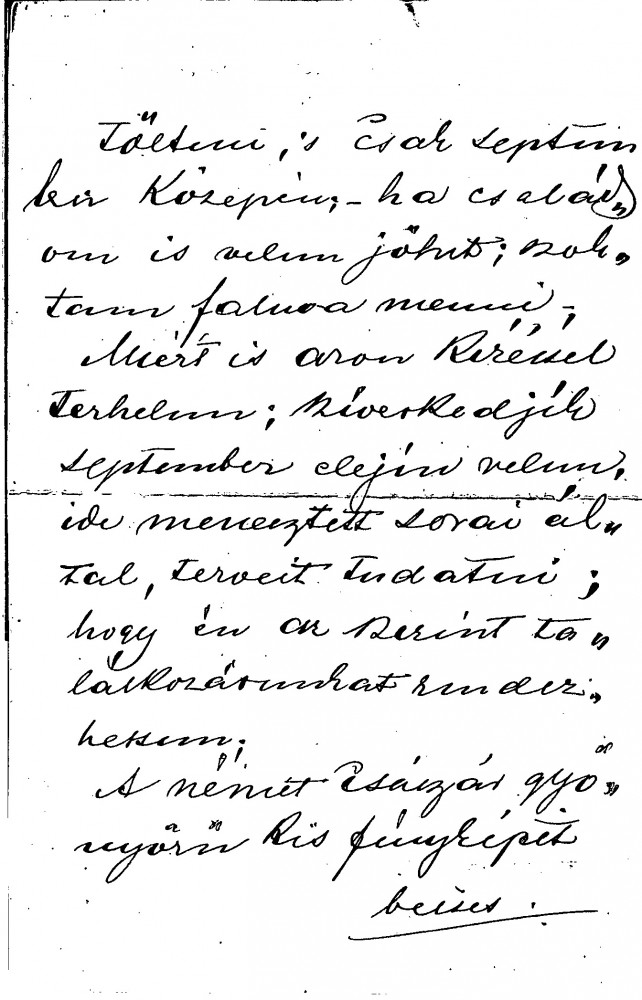 tölteni, 's csak septem
ber közepén; - ha család„
om is velem jöhet; szok„
tam falura menni;
Miért is azon kéréssel
terhelem; szíveskedjék
september elején velem,
ide menesztett sorai ál„
tal, terveit tudatni;
hogy én az szerint ta„
lálkozásunkat rendez„
hessem;
A német császár gyö„
nyörü kis fényképét
becses.